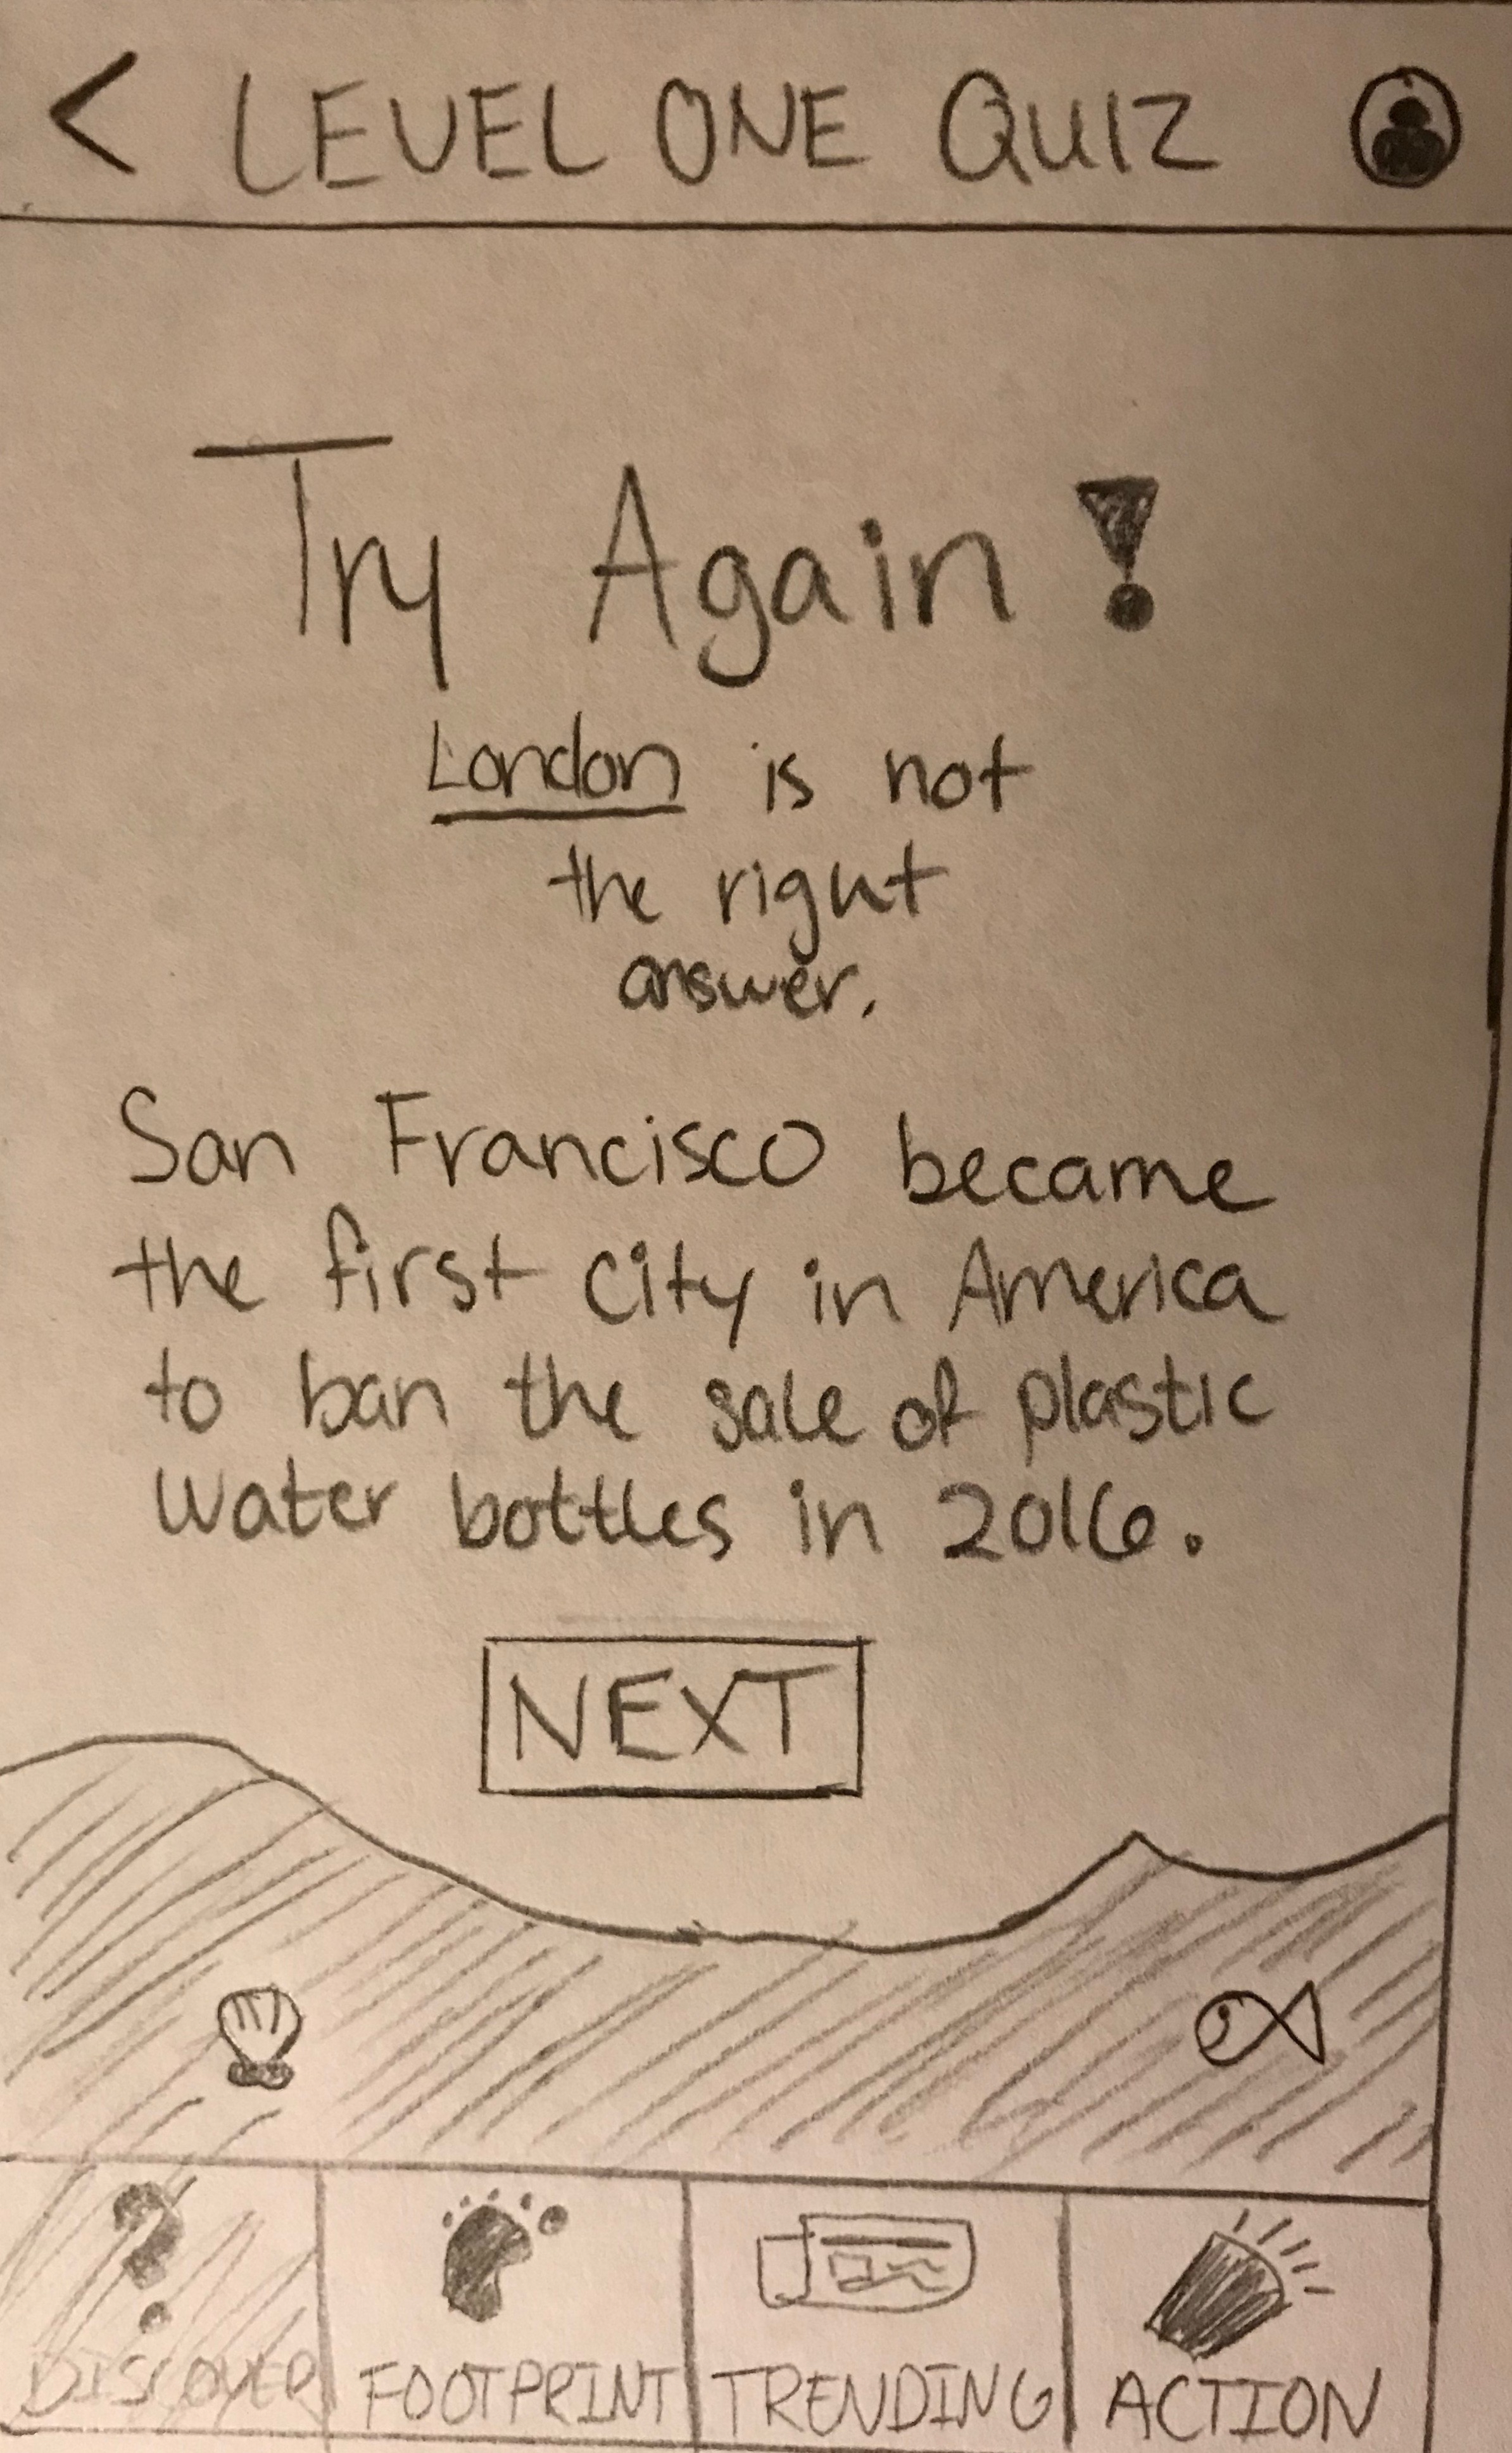 < LEVEL ONE QUIZ
Try Again!
London is not
the right
answer.
San Francisco became
the first city in America
to ban the sale of plastic
water bottles in 2016.
NEXT
?
DISCOVER FOOTPRINT TRENDING ACTION